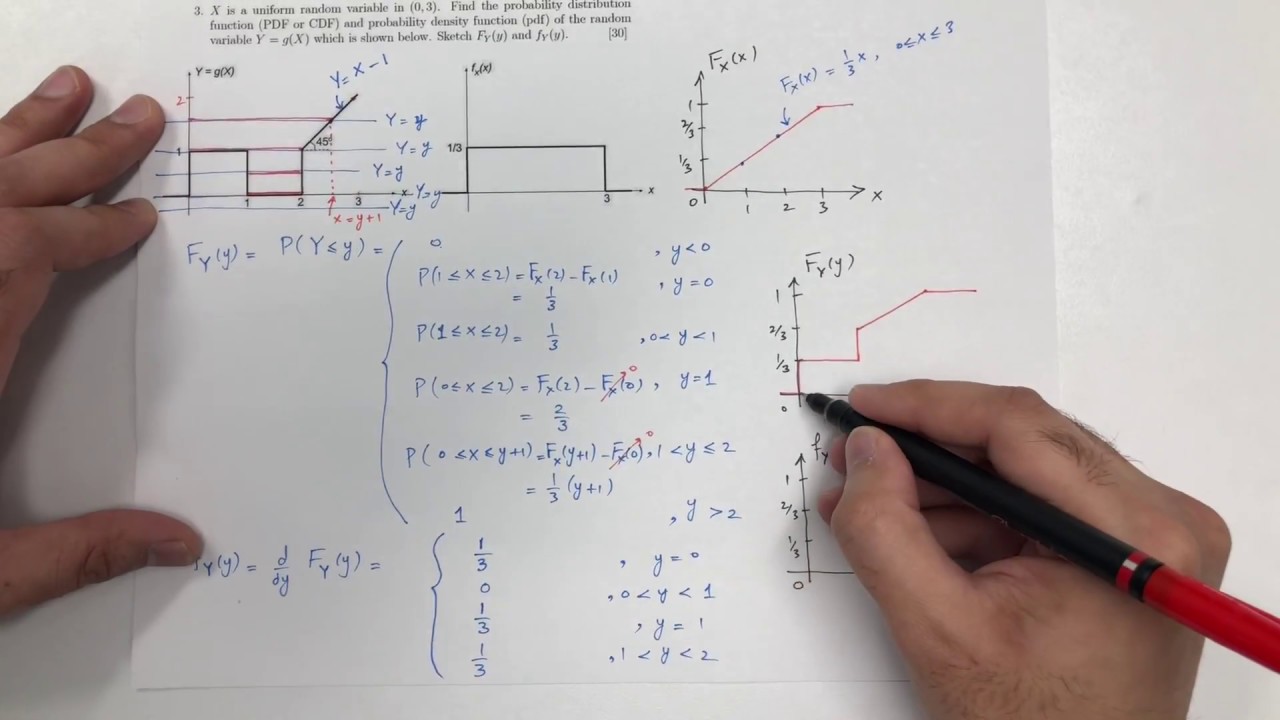 3. X is a uniform random variable in (0, 3). Find the probability distribution
function (PDF or CDF) and probability density function (pdf) of the random
variable Y = g(X) which is shown below. Sketch F_Y(y) and f_Y(y). [30]
Y = g(X)
Y = X - 1
2
Y = y
1
45°
Y = y
Y = y
Y = y
Y = y
1 2 3 x
x = y+1
f_X(x)
1/3
3
x
F_X(x)
F_X(x) = 1/3 x, 0≤x≤3
1
2/3
1/3
0 1 2 3 x
F_Y(y) = P(Y≤y) =
0 , y<0
P(1≤x≤2) = F_X(2) - F_X(1)
= 1/3 , y=0
P(1≤x≤2) = 1/3 , 0<y<1
P(0≤x≤2) = F_X(2) - F_X(0) 0 , y=1
= 2/3
P(0≤x≤y+1) = F_X(y+1) - F_X(0) 0 , 1<y≤2
= 1/3 (y+1)
1 , y>2
F_Y(y)
1
2/3
1/3
0
Y(y) = d/dy F_Y(y) =
1/3 , y=0
0 , 0<y<1
1/3 , y=1
1/3 , 1<y<2
f_Y
1
2/3
1/3
0